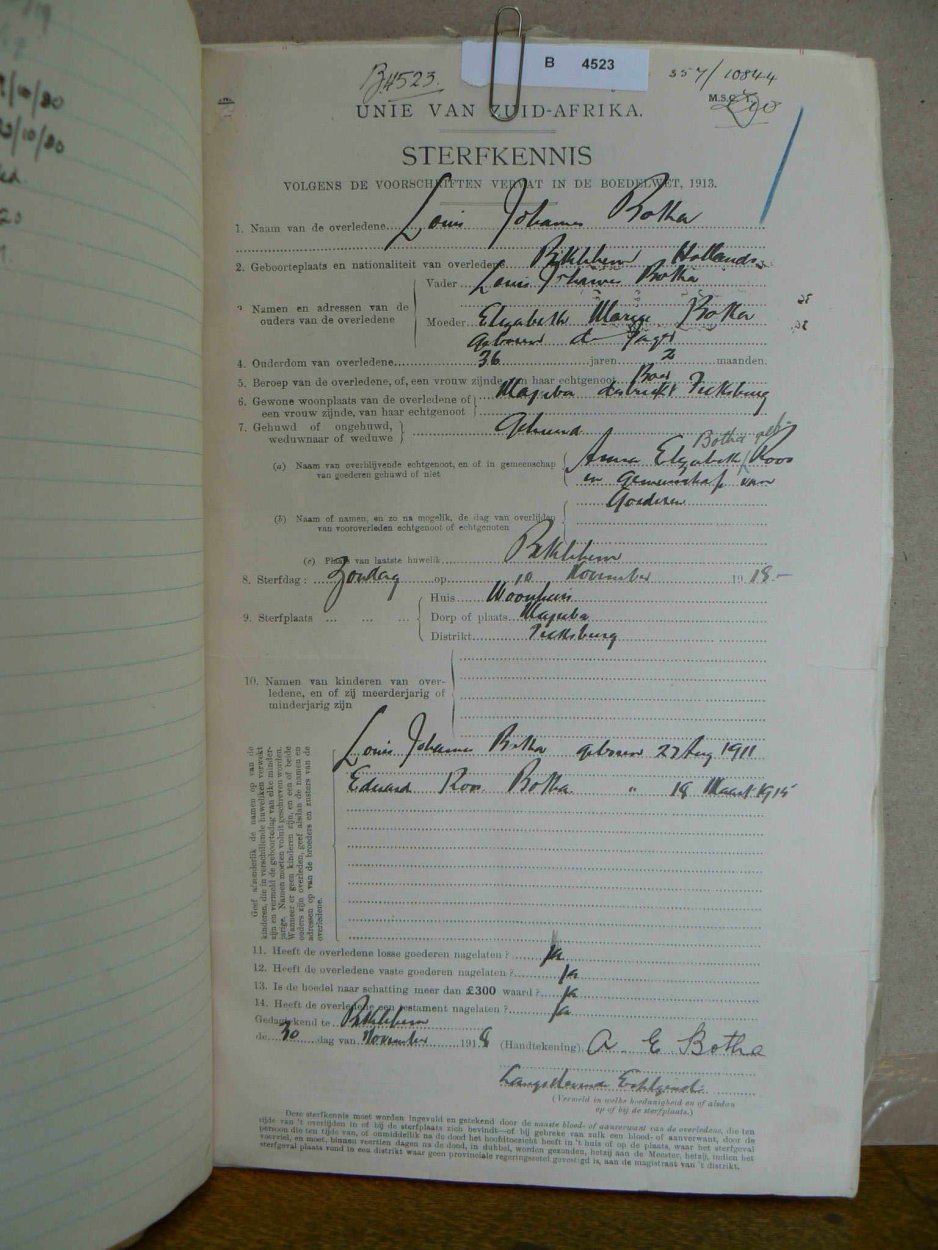 B 4523
B.4523.
357/10844
M.S.C.
UNIE VAN ZUID-AFRIKA.
STERFKENNIS
VOLGENS DE VOORSCHRIFTEN VERVAT IN DE BOEDELWET, 1913.
1. Naam van de overledene Louis Johannes Botha
2. Geboorteplaats en nationaliteit van overledene Bethlehem Hollands
3 Namen en adressen van de ouders van de overledene
Vader Louis Johannes Botha
Moeder Elizabeth Botha
Geboren de Jager
4. Ouderdom van overledene 36 jaren 2 maanden.
5. Beroep van de overledene, of, een vrouw zijnde, van haar echtgenoot Boer
6. Gewone woonplaats van de overledene of een vrouw zijnde, van haar echtgenoot Majuba distrikt Ficksburg
7. Gehuwd of ongehuwd, weduwnaar of weduwe Gehuwd
Botha geb.
(a) Naam van overblijvende echtgenoot, en of in gemeenschap van goederen gehuwd of niet Anna Elizabeth Roos
en gemeenschap van
Goederen
(b) Naam of namen, en zo na mogelik, de dag van overlijden van vooroverleden echtgenoot of echtgenoten
(c) Plaats van laatste huwelik Bethlehem
8. Sterfdag: Zondag op 10 November 1918.-
9. Sterfplaats
Huis Woonhuis
Dorp of plaats Majuba
Distrikt Ficksburg
10. Namen van kinderen van overledene, en of zij meerderjarig of minderjarig zijn
Louis Johannes Botha geboren 27 Aug 1911
Eduard Roos Botha " 19 Maart 1915
Geef afzonderlik de namen op van de
kinderen, die in verschillende huweliken verwekt
zijn en vermeld de geboortedag van elke minder-
jarige. Namen moeten voluit geschreven worden.
Wanneer er geen kinderen zijn, en een of beide
ouders zijn overleden, geef alsdan de namen en
adressen op van de broeders en zusters van de
overledene.
11. Heeft de overledene losse goederen nagelaten? Ja
12. Heeft de overledene vaste goederen nagelaten? Ja
13. Is de boedel naar schatting meer dan £300 waard? Ja
14. Heeft de overledene een testament nagelaten? Ja
Gedagtekend te Bethlehem
de 30 dag van November 1918 (Handtekening) A. E Botha
Langstlevende Echtgenote
(Vermeld in welke hoedanigheid en of alsdan
op of bij de sterfplaats.)
Deze sterfkennis moet worden ingevuld en getekend door de naaste bloed- of aanverwant van de overledene, die ten
tijde van 't overlijden in of bij de sterfplaats zich bevindt—of bij gebreke van zulk een bloed- of aanverwant, door de
persoon die ten tijde van, of onmiddellik na de dood het hoofdtoezicht heeft in 't huis of op de plaats, waar het sterfgeval
voorviel, en moet, binnen veertien dagen na de dood, in dubbel, worden gezonden, hetzij aan de Meester, hetzij, indien het
sterfgeval plaats vond in een distrikt waar geen provinciale regeringszetel gevestigd is, aan de magistraat van 't distrikt.